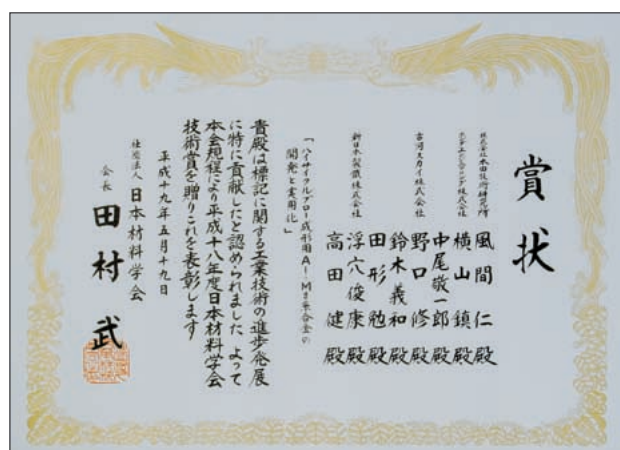 賞状
株式会社本田技術研究所
風間 仁 殿
ホンダエンジニアリング株式会社
横山 鎮 殿
中尾敬一郎 殿
古河スカイ株式会社
野口 修 殿
鈴木義和 殿
田形 勉 殿
新日本製鐵株式会社
浮穴俊康 殿
高田 健 殿
「ハイサイクルブロー成形用Al-Mg系合金の
開発と実用化」
貴殿は標記に関する工業技術の進歩発展
に特に貢献したと認められました よって
本会規程により平成十八年度日本材料学会
技術賞を贈りこれを表彰します
平成十九年五月十九日
社団法人 日本材料学会
会長 田村 武